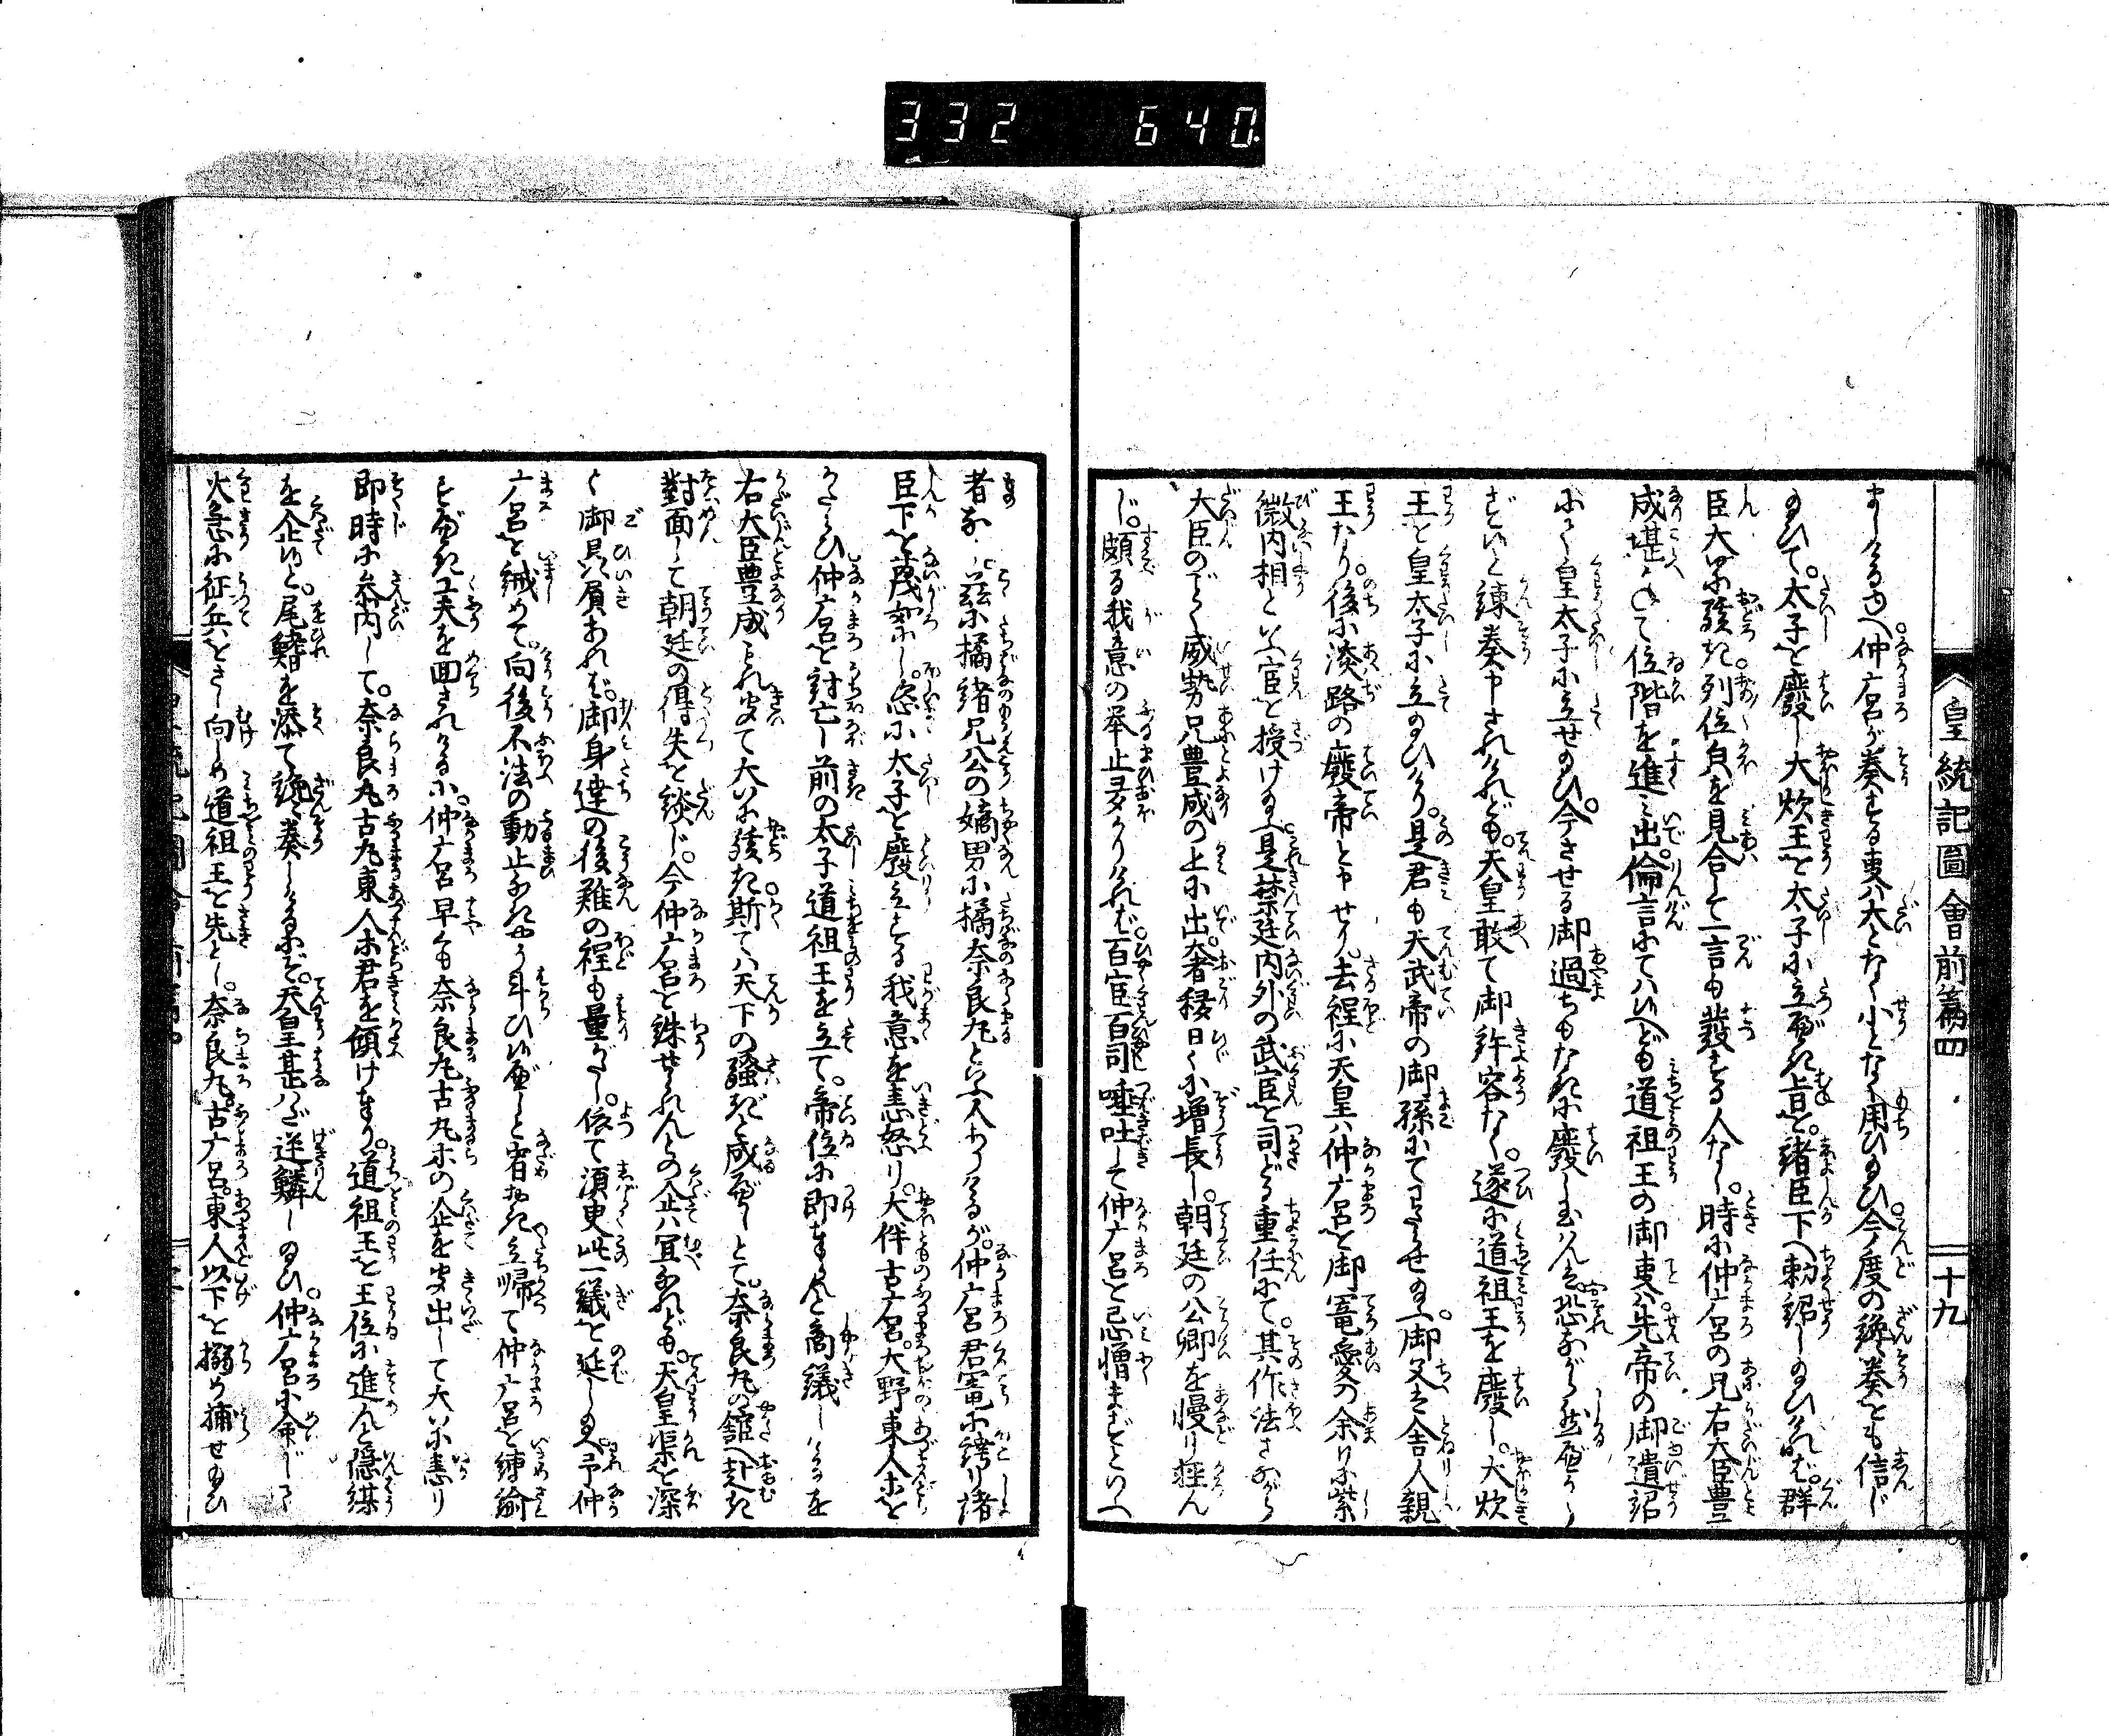 332 640
皇統記圖會前篇四 十九
ましける故へ仲麻呂が奏する事ハ大となく小となく用ひ給ひ今度の讒奏をも信じ
給ひて。太子を廢し大炊王を太子に立べき旨を。諸臣下へ勅紹し給ひければ。群
臣大いに驚き。列位白眼を見合して一言も發する人なし。時に仲麻呂の兄右大臣豊
成堪かねて位階を進み出。倫言にてハ候へども道祖王の御事ハ先帝の御遺詔
にて皇太子に立せ給ひ。今させる御過ちもなきに廢し玉ハん
ずと諫奏申されけれども。天皇敢て御許容なく。遂に道祖王を廢し。大炊
王を皇太子に立給ひけり。是君も天武帝の御孫にてわたらせ給へ。御父は舎人親
王なり。後に淡路の廢帝と申せり。去程に天皇ハ仲麻呂を御寵愛の余りに紫
微内相といふ官を授け給ふ是禁廷内外の武官を司どる重任にて。其作法さながら
大臣のごとく威勢兄豊成の上に出。奢者日々に増長し。朝廷の公卿を慢り
じ。頗る我意の挙止多かりければ。百官百司唾吐して仲麻呂を忌憎まずといへ
者なし。茲に橘諸兄公の嫡男に橘奈良丸といふ人ありけるが。仲麻呂君寵に誇り諸
臣下を蔑如にし。恣に太子を廢立する我意を恚怒り。大伴古麻呂。大野東人等を
かたらひ仲麻呂を討亡し前の太子道祖王を立て。帝位に即まゐらせんと商議しけるを
右大臣豊成これを聞て大いに驚き斯てハ天下の騒ぎと成べしとて。奈良丸の舘へ赴き
對面して朝廷の得失を談じ。今仲麻呂を誅せられんとの企ハ宜なれども。天皇渠を深
く御贔屓あれば。御身達の後難の程も量がたし。依て須臾此一議を延し給へ。予仲
麻呂を誡めて。向後不法の動止なきやう斗ひ候べしと宥おき立帰て仲麻呂を諫諭
すべき工夫を回されけるに。仲麻呂早くも奈良丸古丸等の企を聞出して大いに恚り
即時に参内して。奈良丸古丸東人等君を傾けまゐらせ。道祖王を王位に進んと隠謀
を企候と。尾鰭を添て讒奏しけるにぞ。天皇甚ハだ逆鱗し給ひ。仲麻呂に命じ
火急に征兵をさし向しめ道祖王を先とし。奈良丸。古麻呂。東人以下を搦め捕せ給ひ